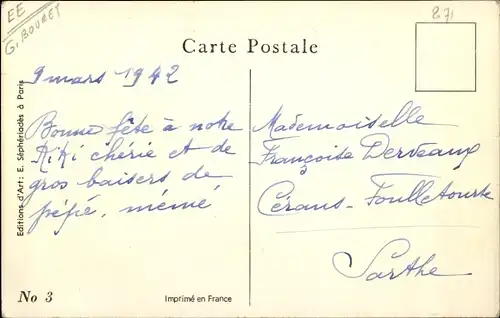 EE
G. BOURET
871
Carte Postale
9 mars 1942
Bonne fête à notre
Kiki chérie et de
gros baisers de
pépié, mémé
Editions d'Art: E. Séphériadès à Paris
Mademoiselle
Françoise Derveaux
Cérans-Foulletourte
Sarthe
No 3
Imprimé en France